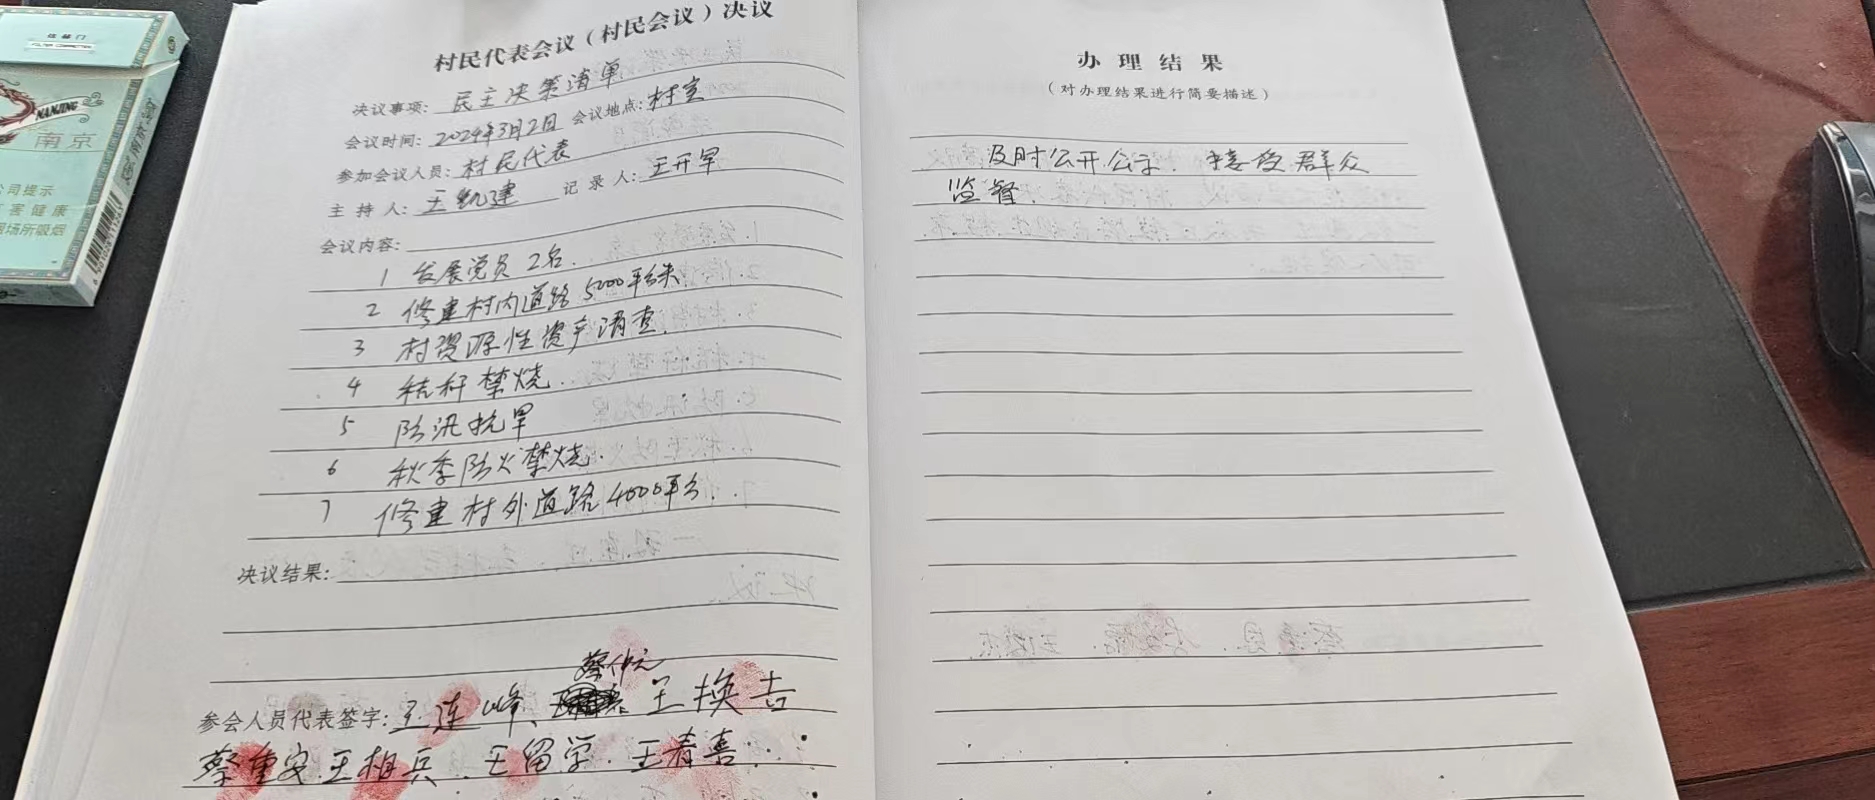 村民代表会议（村民会议）决议
决议事项: 民主决策清单
会议时间: 2024年3月2日 会议地点: 村室
参加会议人员: 村民代表
主持人: 王凯建 记录人: 王开军
会议内容:
1 发展党员2名.
2 修建村内道路5000平方米
3 村资源性资产清查.
4 秸秆禁烧.
5 防汛抗旱
6 秋季防火禁烧.
7 修建村外道路4000平方.
决议结果:
蔡仲元
参会人员代表签字: 王连峰、王换吉
蔡重安.王相兵.王留学.王春喜.
办理结果
（对办理结果进行简要描述）
及时公开公示. 接受群众
监督.
NANJING
南京
公司提示
害健康
烟场所吸烟